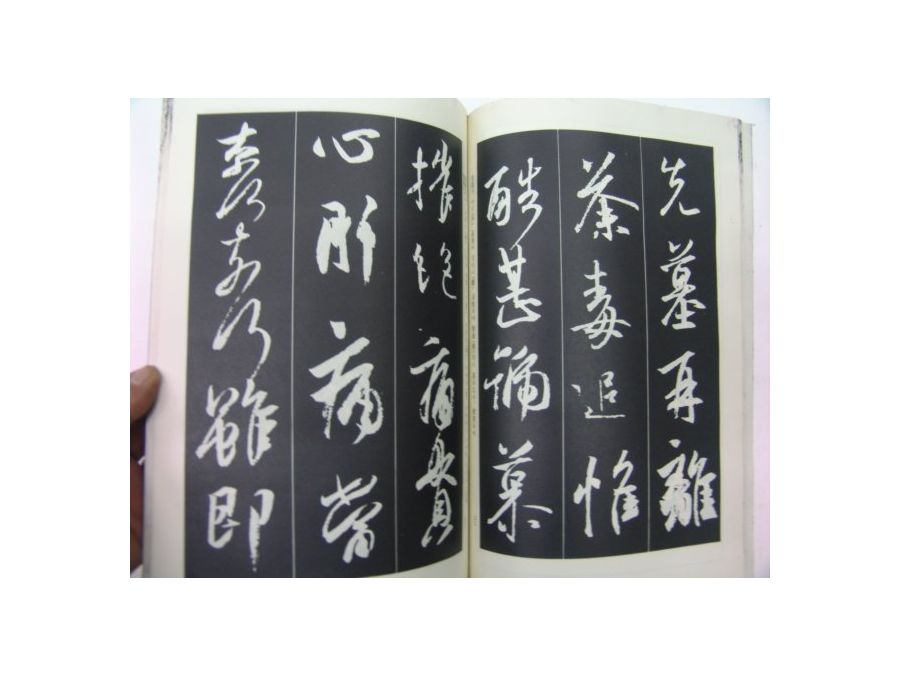 先墓再離
荼毒追惟
酷甚號慕
摧絶痛貫
心肝痛當
奈何奈何雖即